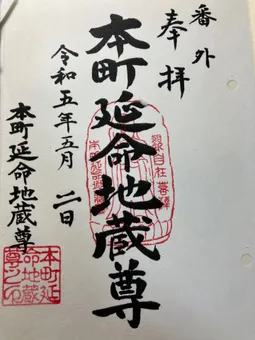 番外
奉拝
本町延命地蔵尊
令和五年五月二日
本町延命地蔵尊
本町延
命地蔵
尊之印